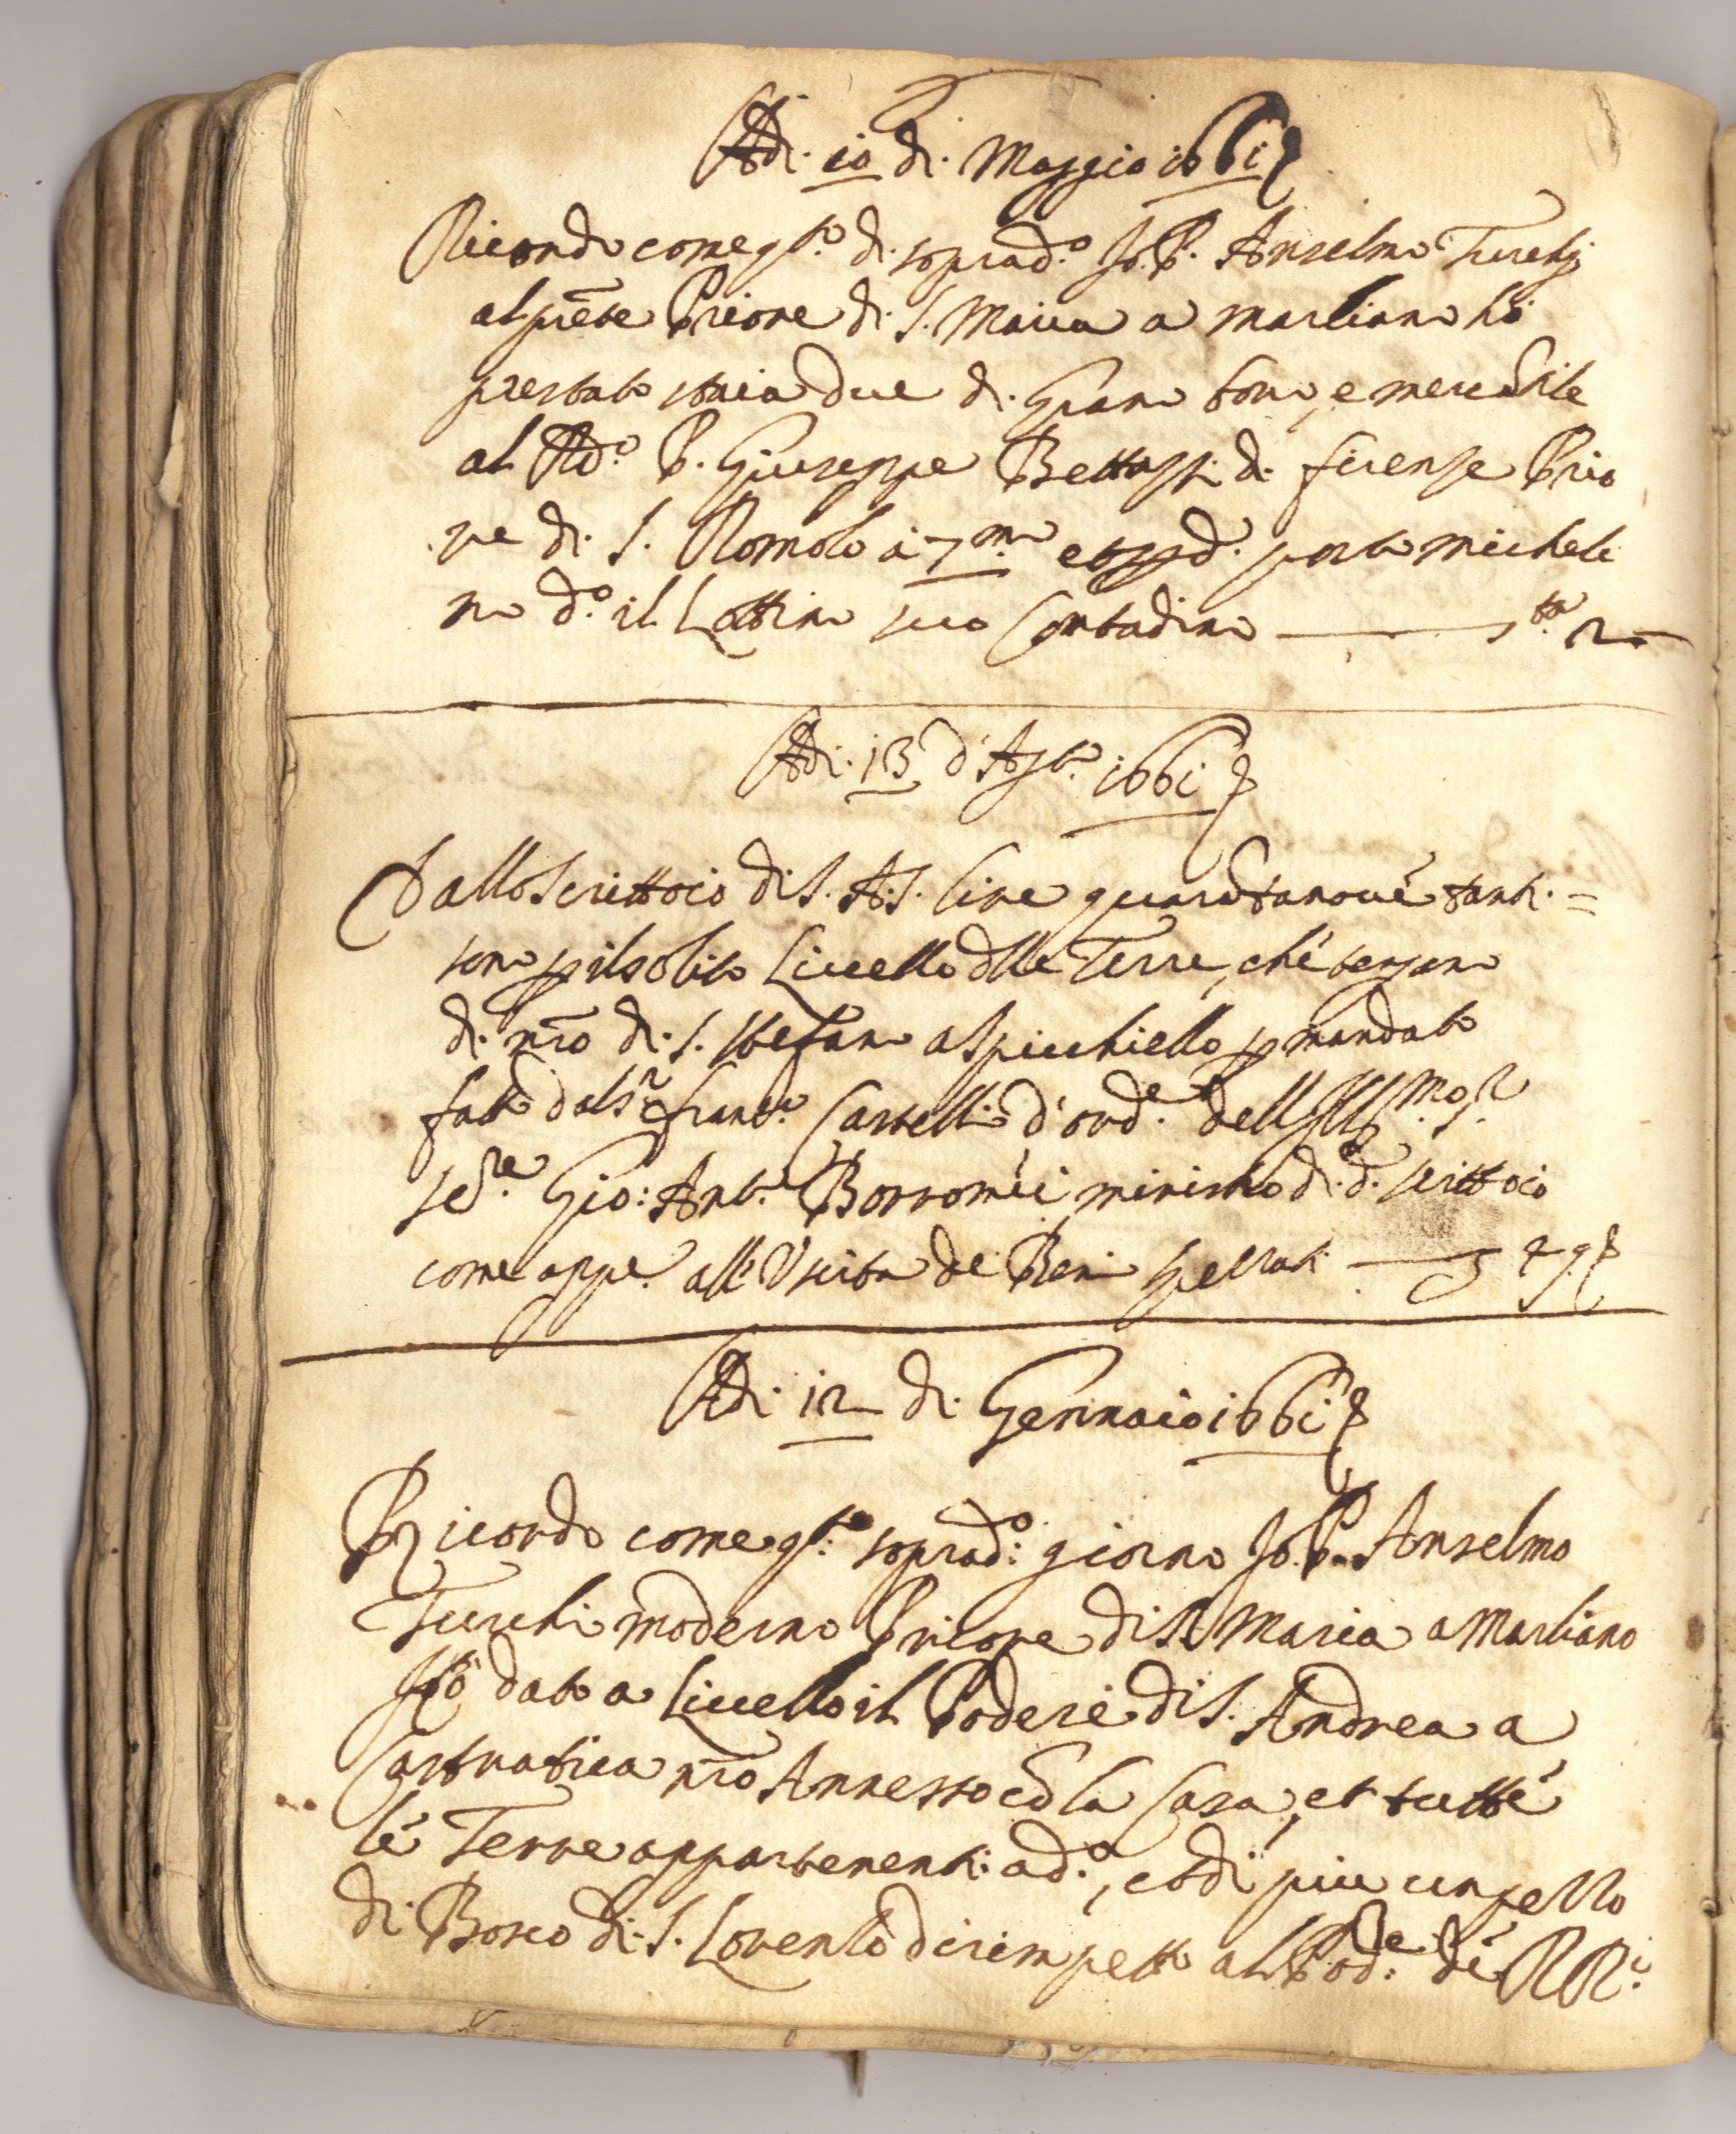 Adi. 10 di. Maggio 1661
Ricordo come qto. di. soprado. Io. P. Anselmo Turchj
al prēte Priore di. S. Maria a Marliano hò
prestato staia due di. Grano bono, e mercātile
al Rdo. P. Giuseppe Bettazzi di. firenze Prio
re di. S. Romolo à 7mo portò Michele
no do. il Lottino suo Contadino sta. 2
Adi. 13 d'Agto. 1661
Dallo Scrittoio di S. A. S. lire quarātanoué tanti. =
sono p il solito Livello dlle Terre, ché tengono
di. nrō di. S. Stefano a Spicchiello p mandato
fatto dal Sr. Franco. Castelli d'orde. dell Illmo. Sr.
Gio: Anto. Borromèi ministro di. do. scrittoio
come appe. all'Uscita de Beni
Adi. 12 di. Gennaio 1661
Ricordo come qto: soprado: giorno Io. P. Anselmo
Turchi moderno Priore di S. Maria a Marliano
Hò dato a Livello il Poderé di S. Andrea a
Castratica nrō Annesso cō la Casa, et tutté
lé Terre appartenenti: a do., et di più un pezzo
di. Bosco di. S. Lorenzo dirimpetto al Pode: dé RRi.